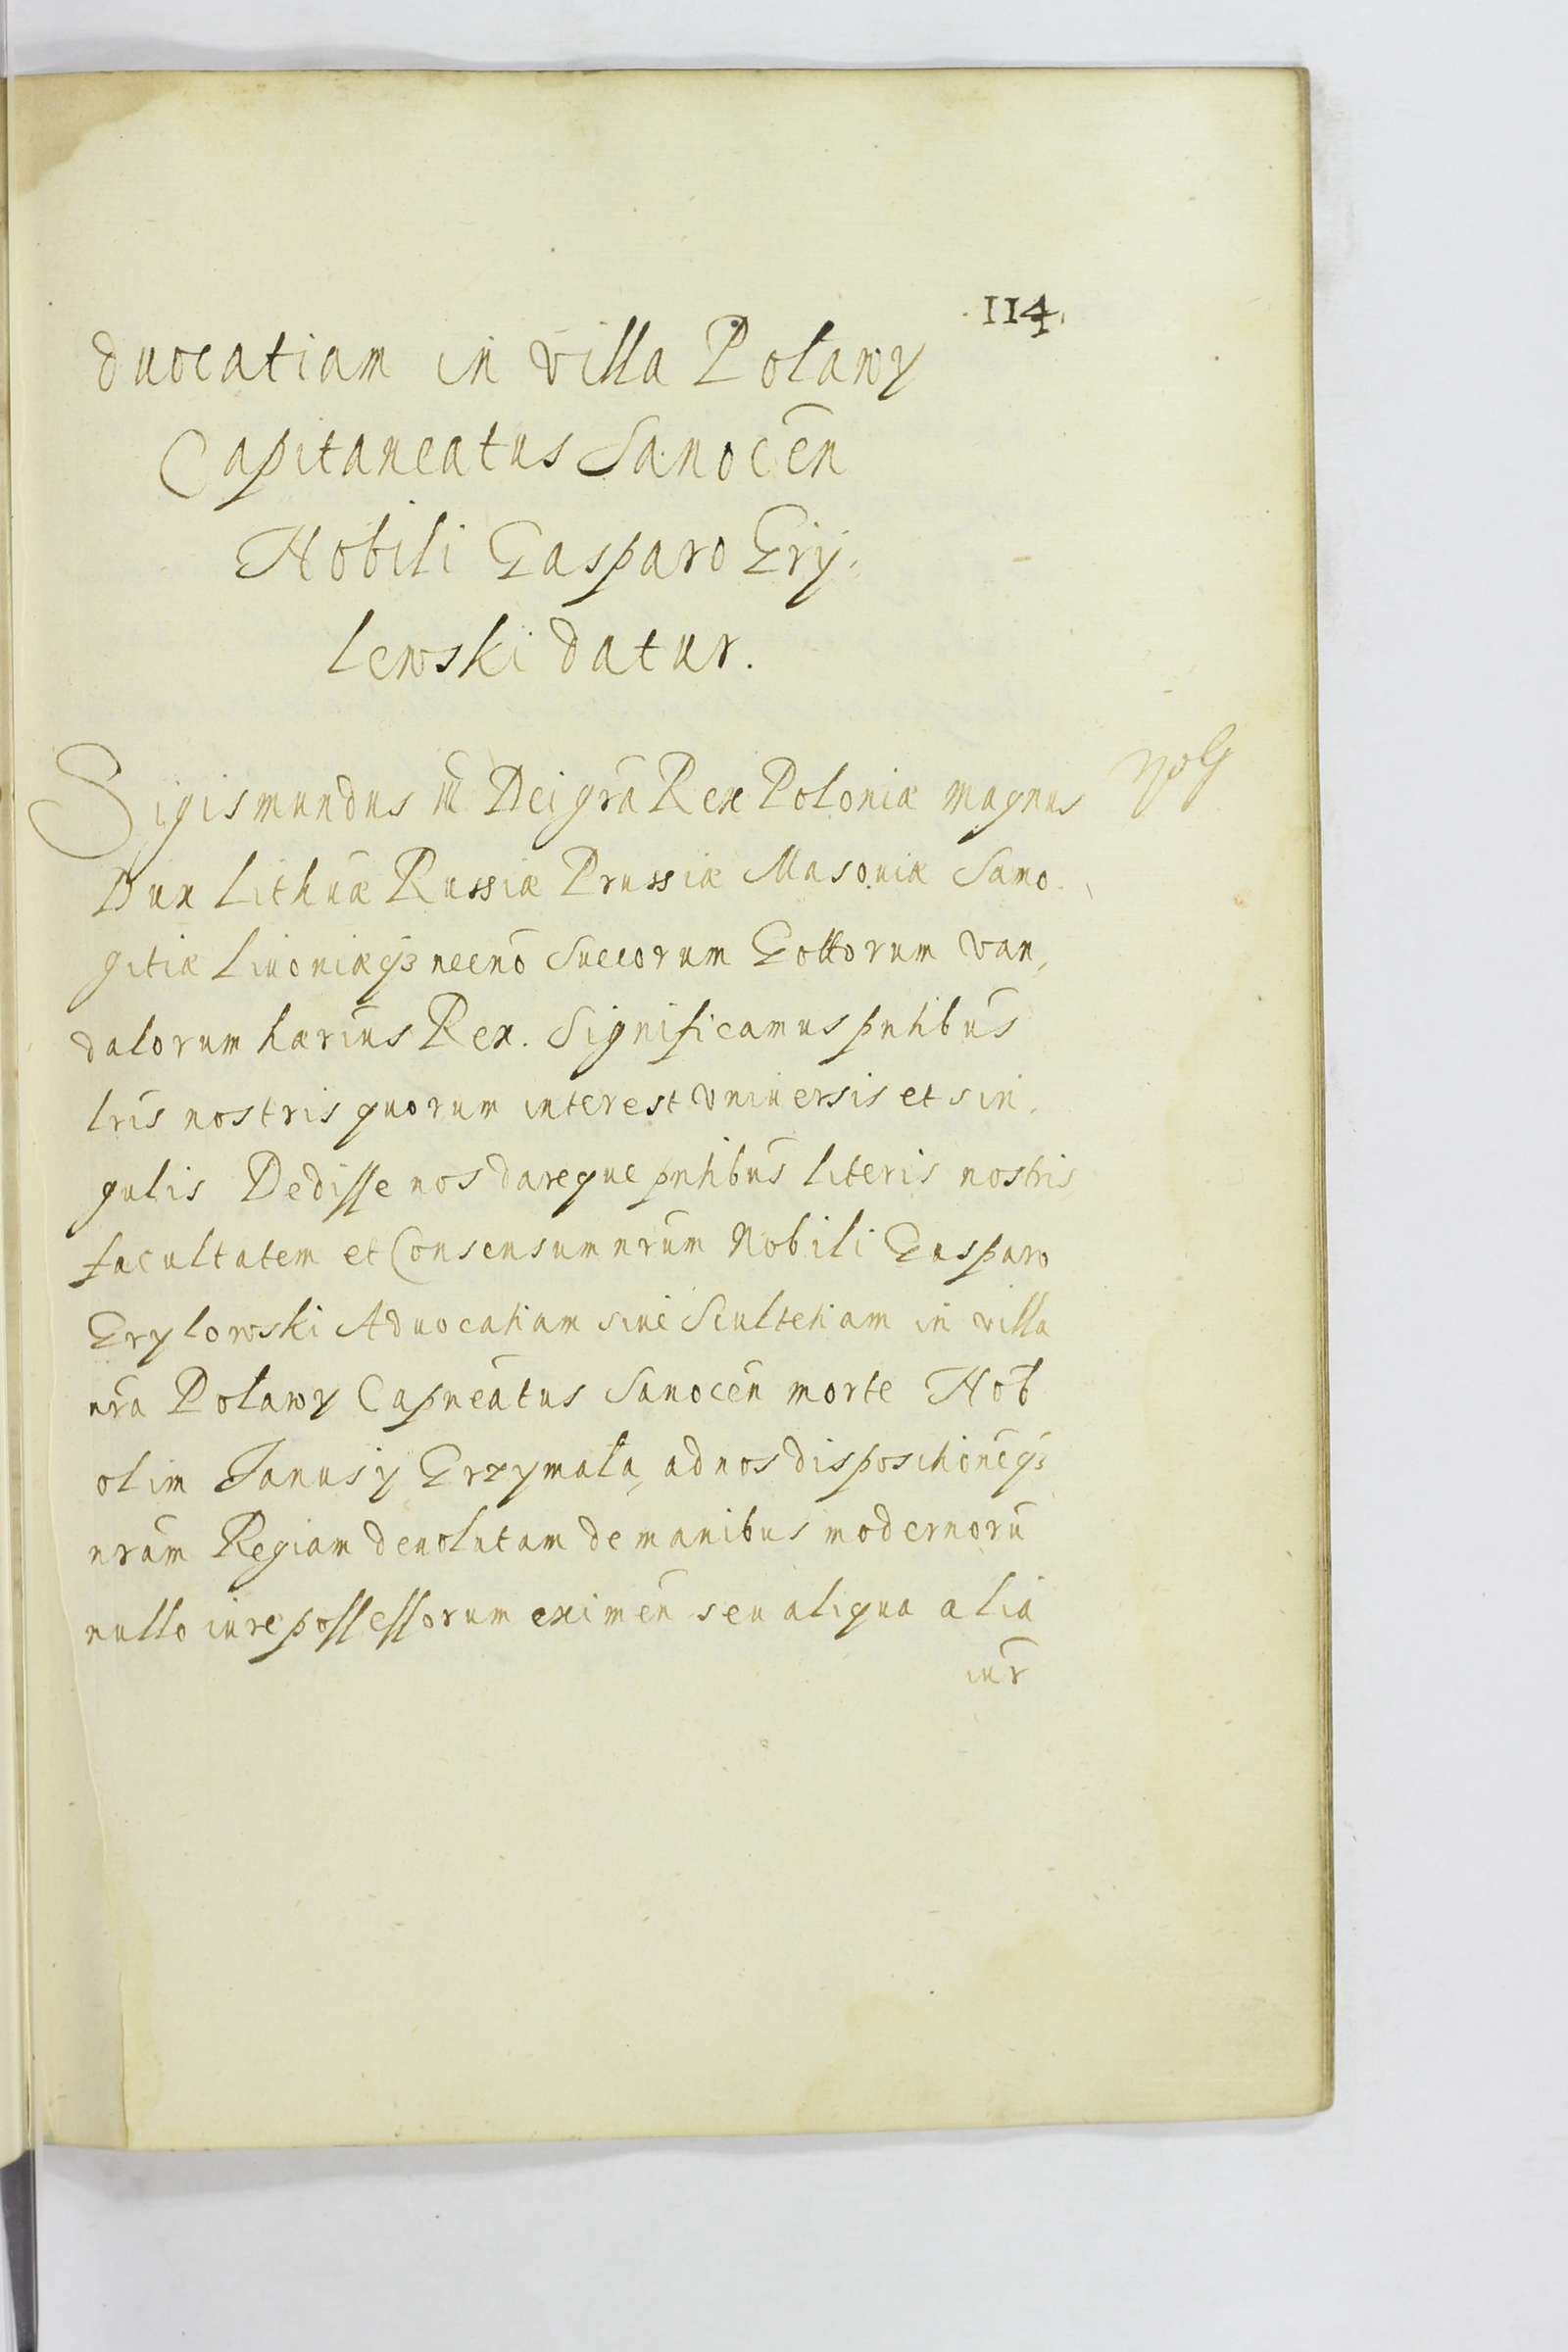 114.
duocatiam in villa Polawy
Capitaneatus Sanocen̄
Nobili Gasparo Gry,
lewski datur.
Sigismundus III Dei gr̄a Rex Poloniæ magnus
Dux Lithūæ Russiæ Prussiæ Masouiæ Samo,
gitiæ Liuoniæq3 necnō Suecorum Gottorum Van,
dalorum hærius Rex. Significamus pn̄tibus
lris̄ nostris quorum interest Vniuersis et sin,
gulis Dedisse nos dareque pn̄tibus literis nostris
facultatem et Consensum nrūm Nobili Gasparo
Grylowski Aduocatiam siue Scultetiam in villa
nrā Polawy Capneātus Sanocen̄ morte Nob
olim Janusÿ Grzymała, ad nos dispositionēq3
nrām Regiam deuolutam de manibus modernorū
nullo iure possessorum eximen̄ seu aliqua alia
iur̄